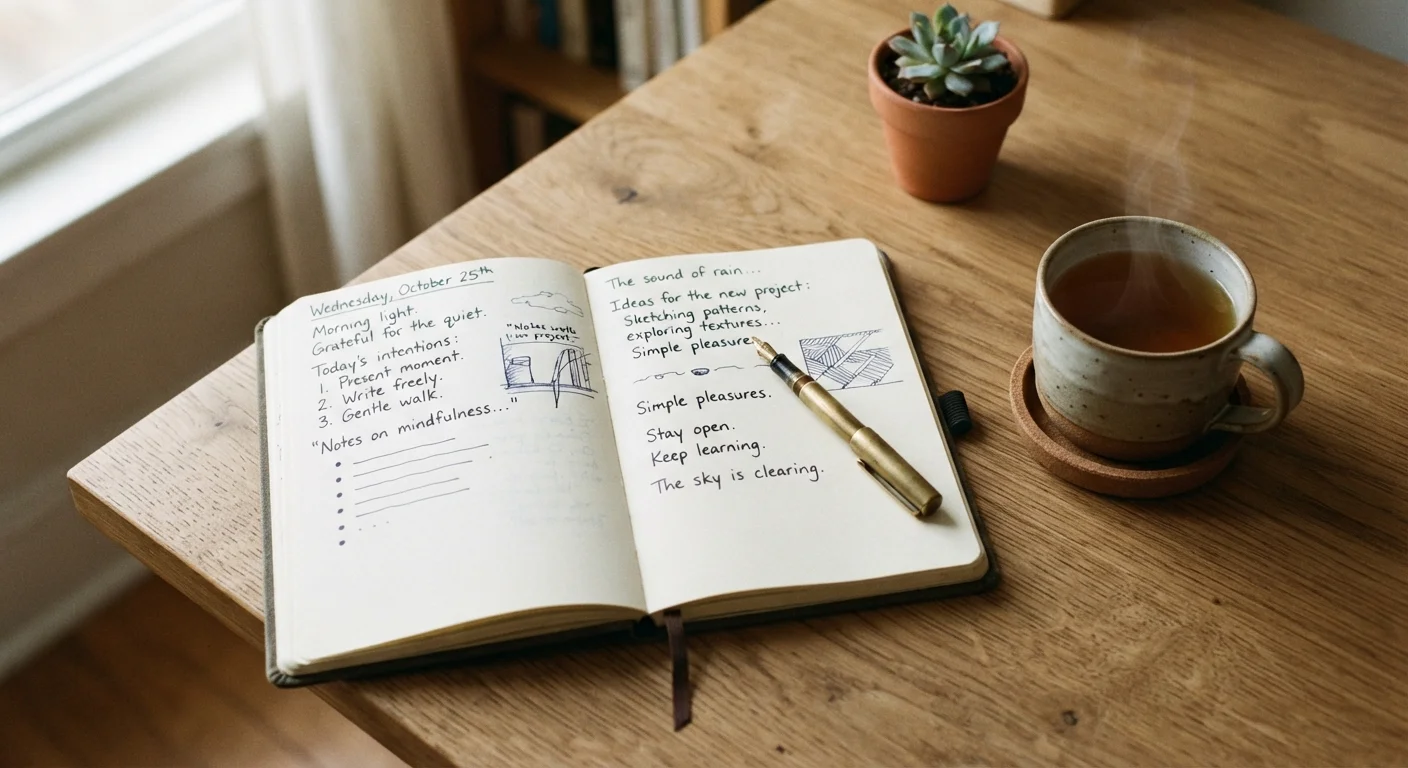 Wednesday, October 25th
Morning light.
Grateful for the quiet.
Today's intentions:
1. Present moment.
2. Write freely.
3. Gentle walk.
"Notes on mindfulness..."
"Notes
project:
The sound of rain...
Ideas for the new project:
Sketching patterns,
exploring textures...
Simple pleasures
Simple pleasures.
Stay open.
Keep learning.
The sky is clearing.